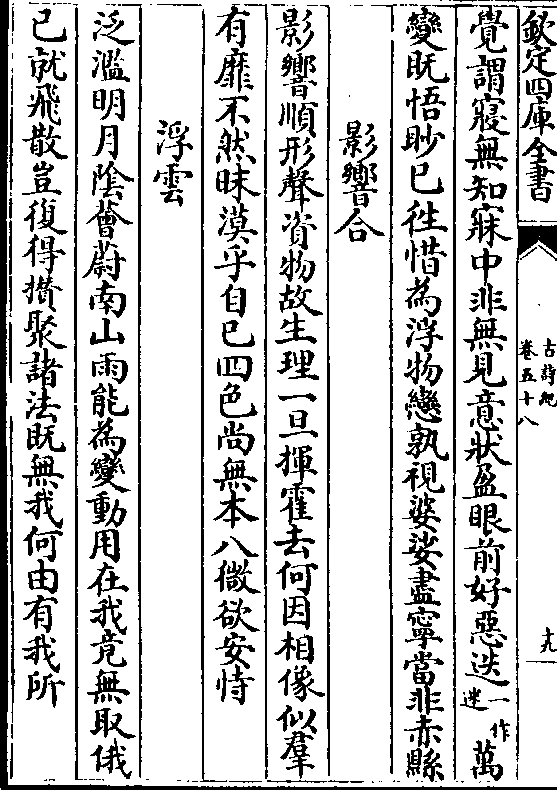 欽定四庫全書
古詩紀
卷五十八
十九
覺謂寢無知寐中非無見意狀盈眼前好惡迭一作迷萬
變既悟眇已往惜為浮物戀孰視婆娑盡寧當非赤縣
影響合
影響順形聲資物故生理一旦揮霍去何因相像似羣
有靡不然昧漠乎自已四色尚無本八微欲安恃
浮雲
泛濫明月陰薈蔚南山雨能為變動用在我竟無取俄
已就飛散豈復得攅聚諸法既無我何由有我所